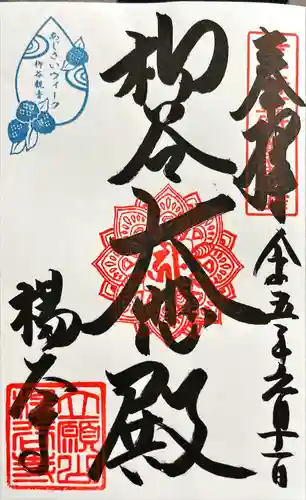 奉拝
令五年六月十一日
柳谷
大悲殿
楊谷寺
あじさいウィーク
柳谷観音
立願山
楊谷寺